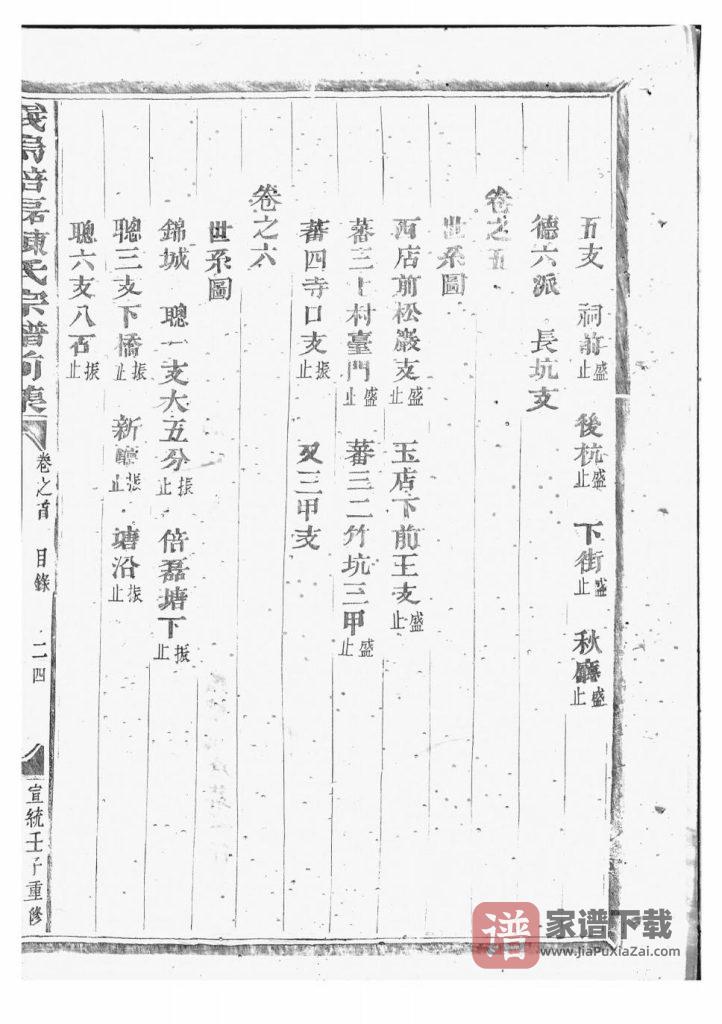 五支 祠前盛止 後杭盛止 下街盛止 秋廳盛止
德六派 長坑支
卷之五
世系圖
西店前松巖支盛止 玉店下前王支盛止
蕃三上村臺門盛止 蕃三二竹坑三甲盛止
蕃四寺口支振止 又三甲支
卷之六
世系圖
錦城 聰一支大五分振止 倍磊塘下振止
聰三支下橋振止 新 振止 塘沿振止
聰六支八石振止
義烏倍磊陳氏宗譜前集 卷之首 目錄 二四 宣統壬子重修
谱 家谱下载
www.JiaPuXiaZai.com